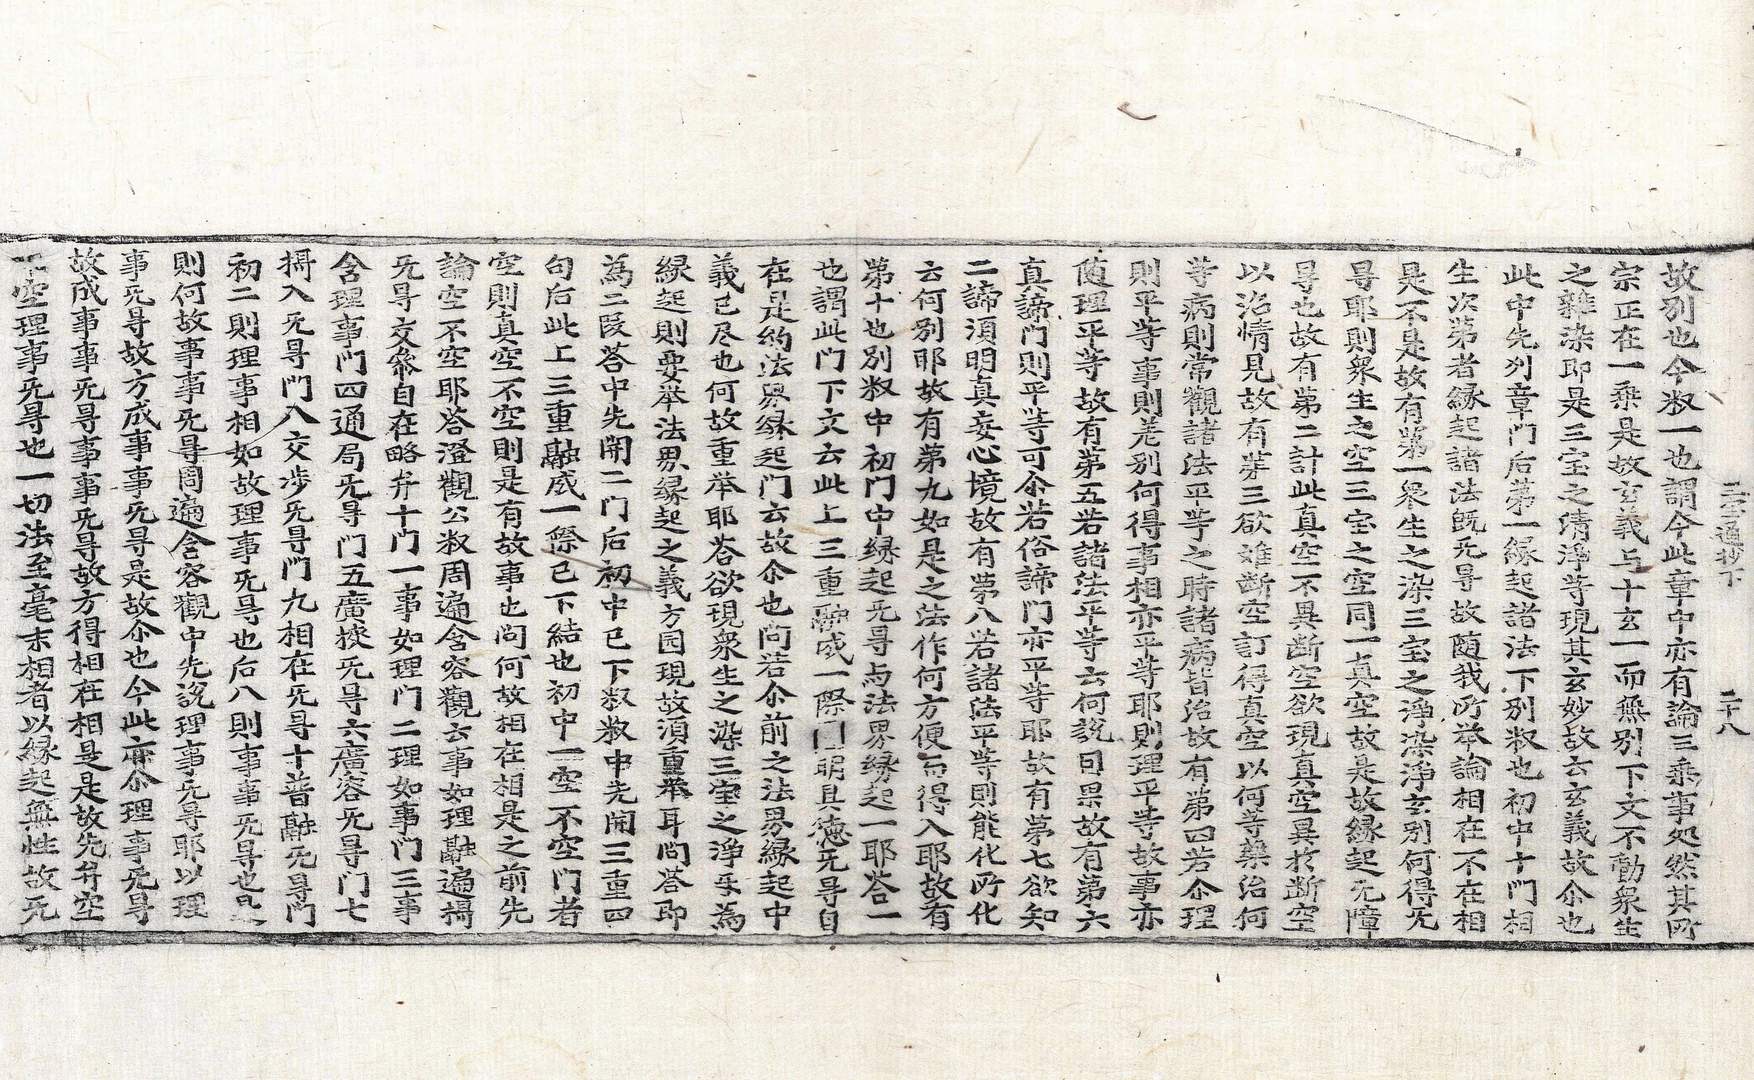 三宝章通抄下　二十八
故別也今叙一也謂今此章中亦有論三乘事処然其所
宗正在一乘是故玄義与十玄一而無別下文不動衆生
之雜染即是三宝之清淨等現其玄妙故云玄義故尒也
此中先列章門后苐一縁起諸法下別叙也初中十門相
生次苐者縁起諸法旣旡㝵故随我所举論相在不在相
是不是故有苐一衆生之染三宝之淨染淨玄別何得旡
㝵耶則衆生之空三宝之空同一真空故是故縁起旡障
㝵也故有苐二計此真空不異断空欲現真空異於断空
以治情見故有苐三欲难断空訂得真空以何等藥治何
等病則常觀諸法平等之時諸病皆治故有苐四若尒理
則平等事則差别何得事相亦平等耶則理平等故事亦
随理平等故有苐五若諸法平等云何說因果故有苐六
真諦門則平等可尒若俗諦門亦平等耶故有苐七欲知
二諦須明真妄心境故有苐八若諸法平等則能化所化
云何別耶故有苐九如是之法作何方便而得入耶故有
第十也別叙中初門中縁起旡㝵与法界縁起一耶荅一
也謂此門下文云此上三重融成一際囗明具德旡㝵自
在是約法界縁起門云故尒也问若尒前之法界縁起中
義已尽也何故重举耶荅欲現衆生之染三宝之淨乎為
縁起則要举法界縁起之義方园現故須重举耳问荅即
為二叚荅中先開二门后初中已下叙叙中先開三重四
句后此上三重融成一際已下結也初中一空不空門者
空則真空不空則是有故事也问何故相在相是之前先
論空不空耶荅澄觀公叙周遍含容觀云事如理融遍攝
旡㝵交叅自在略弁十门一事如理門二理如事門三事
含理事門四通局旡㝵门五廣狹旡㝵六廣容旡㝵门七
攝入旡㝵門八交涉旡㝵門九相在旡㝵十普融旡㝵門
初二則理事相如故理事旡㝵也后八則事事旡㝵也是
則何故事事旡㝵周遍含容觀中先說理事旡㝵耶以理
事旡㝵故方成事事旡㝵是故尒也今此亦尒理事旡㝵
故成事事旡㝵事事旡㝵故方得相在相是是故先弁空
不空理事旡㝵也一切法至毫末相者以縁起無性故旡